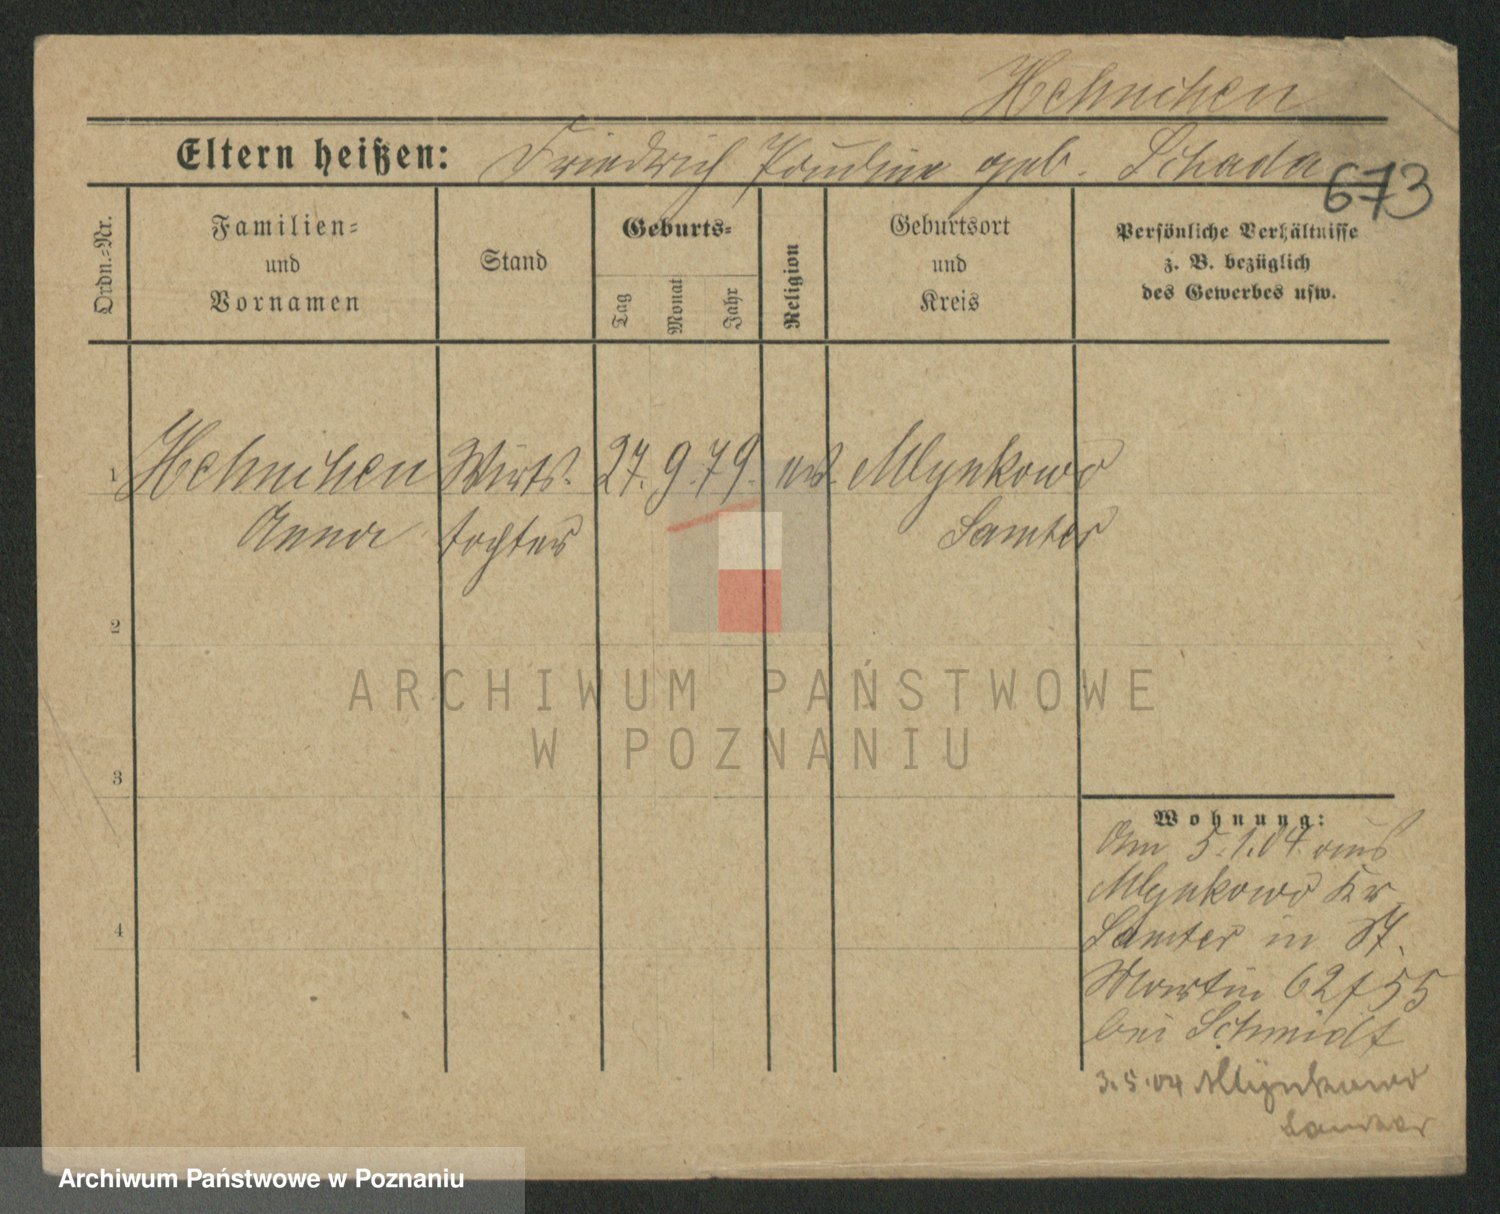 Hehnchen
Eltern heißen: Friedrich Pauline geb. Schada
673
Ordn.-Nr.
Familien-
und
Vornamen
Stand
Geburts-
Tag
Monat
Jahr
Religion
Geburtsort
und
Kreis
Persönliche Verhältnisse
z. B. bezüglich
des Gewerbes usw.
1 Hehnchen Wirts- 27. 9. 79. ev. Mlynkowo
Anna tochter Samter
2
ARCHIWUM PAŃSTWOWE
W POZNANIU
3
4
Wohnung:
Am 5.1.04 aus
Mlynkowo Kr.
Samter in St.
Martin 62/55
bei Schmidt
3.5.04 Mlynkowo
Samter
Archiwum Państwowe w Poznaniu